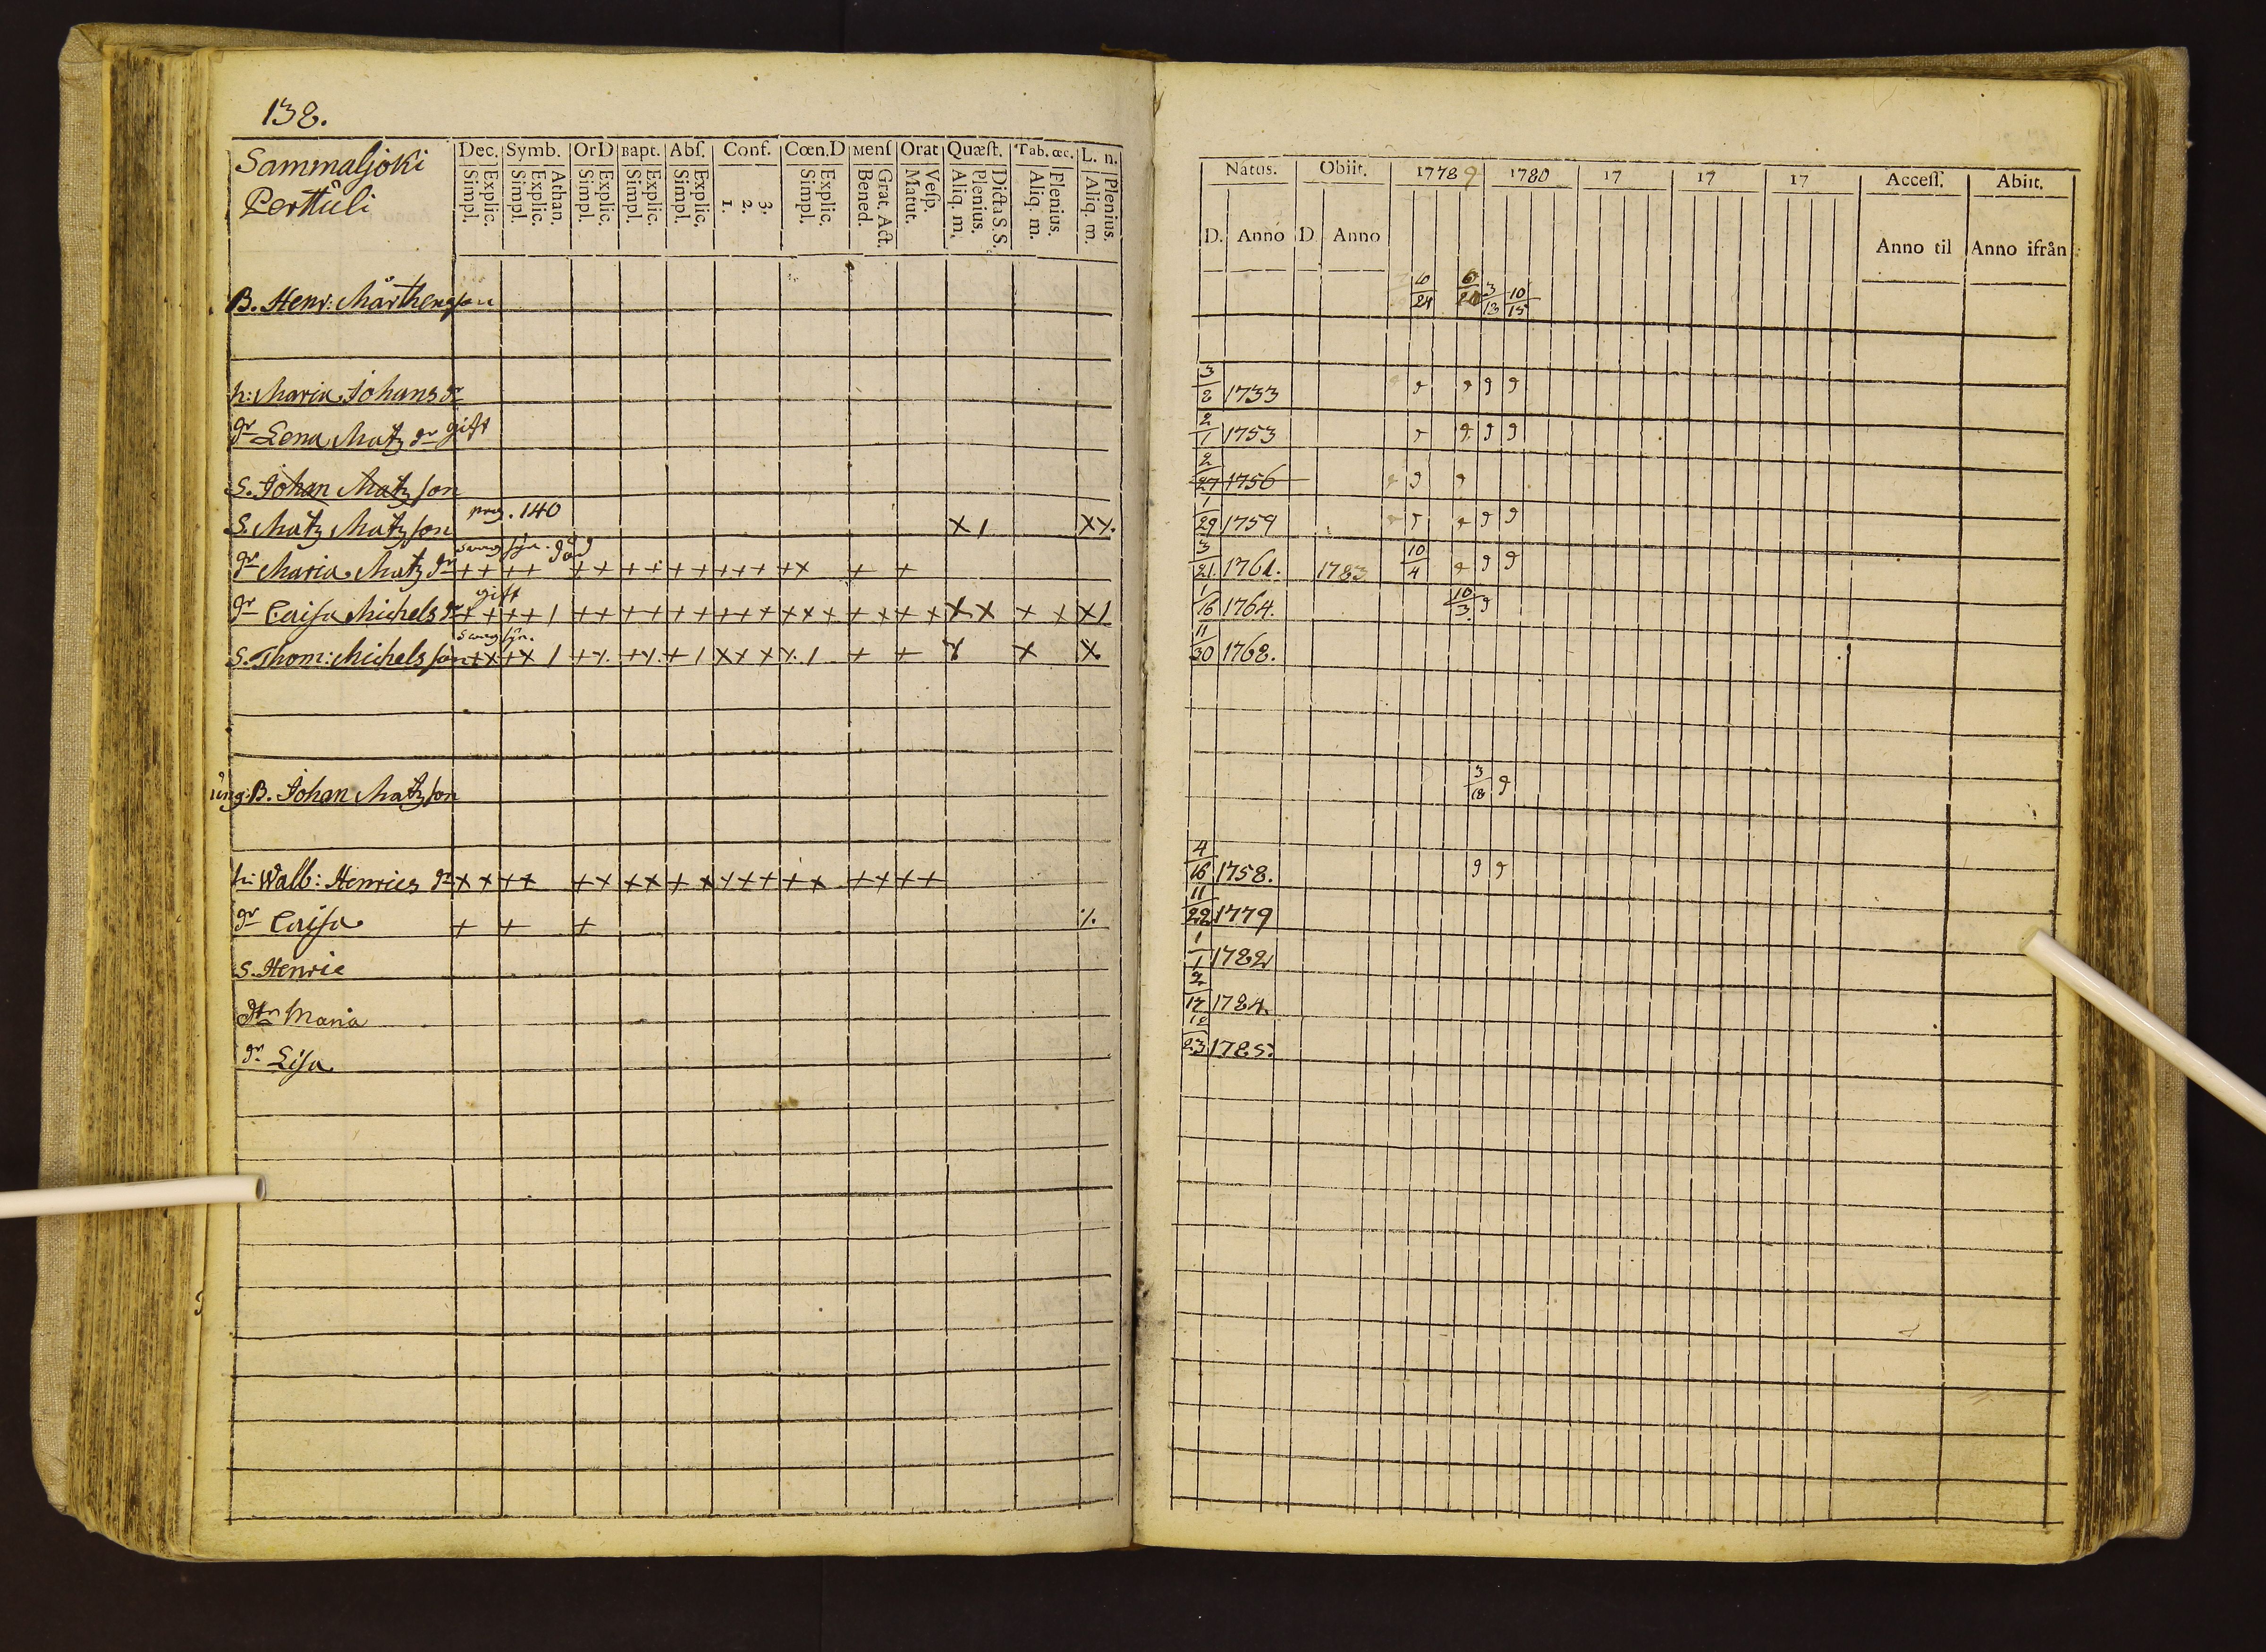 138.
Sammaljoki
Perttuli
Dec. Symb. OrD Bapt. Abſ. Conf. Cœn.D Menſ Orat Quæſt. Tab. œc. L. n.
Explic. Simpl. Athan. Explic. Simpl. Explic. Simpl. Explic. Simpl. Explic. Simpl. 3. 2. 1. Explic. Simpl. Grat. Act. Bened. Veſp. Matut. Dicta S. S. Plenius. Aliq. m. Plenius. Aliq. m. Plenius. Aliq. m.
Natus. Obiit. 1778 9 1780 17 17 17 Acceſſ. Abiit.
D. Anno D Anno Anno til Anno ifrån
B. Henr: Mårthengson 10/24 6/20 3/13 10/15
h: Maria Johans dr 3/8 1733 9 9 9 9
dr Lena Matz dr gift 2/1 1753 9 9 9
S. Johan Matzson 2/27 1756 9 9
pag. 140
S. Matz Matzson x 1 x x. 1/29 1759 9 9 9
dr Maria Matz dr ++ ++ ++ ++ ++ +++ ++ + + 3/21. 1761. 1783 10/4 9 9 9
gift
dr Caisa Michels dr ++ ++ 1 ++ ++ ++ +++ xx x + x x x x x + x x 1 1/16 1764. 10/3. 9
S. Thom: Michelsson ++ +x 1 + x. + x. + 1 x x x x. 1 + + x x x 11/30 1768.
ung: B. Johan Matzson 3/18 9
h: Walb: Henrics dr x x ++ ++ xx + x +++ ++ ++ ++ 4/16 1758. 9 9
dr Caisa + + + 11/22 1779
S. Henric 1/1 1782
dtr Maria 2/12 1784.
dr Lisa 10/23 1785.